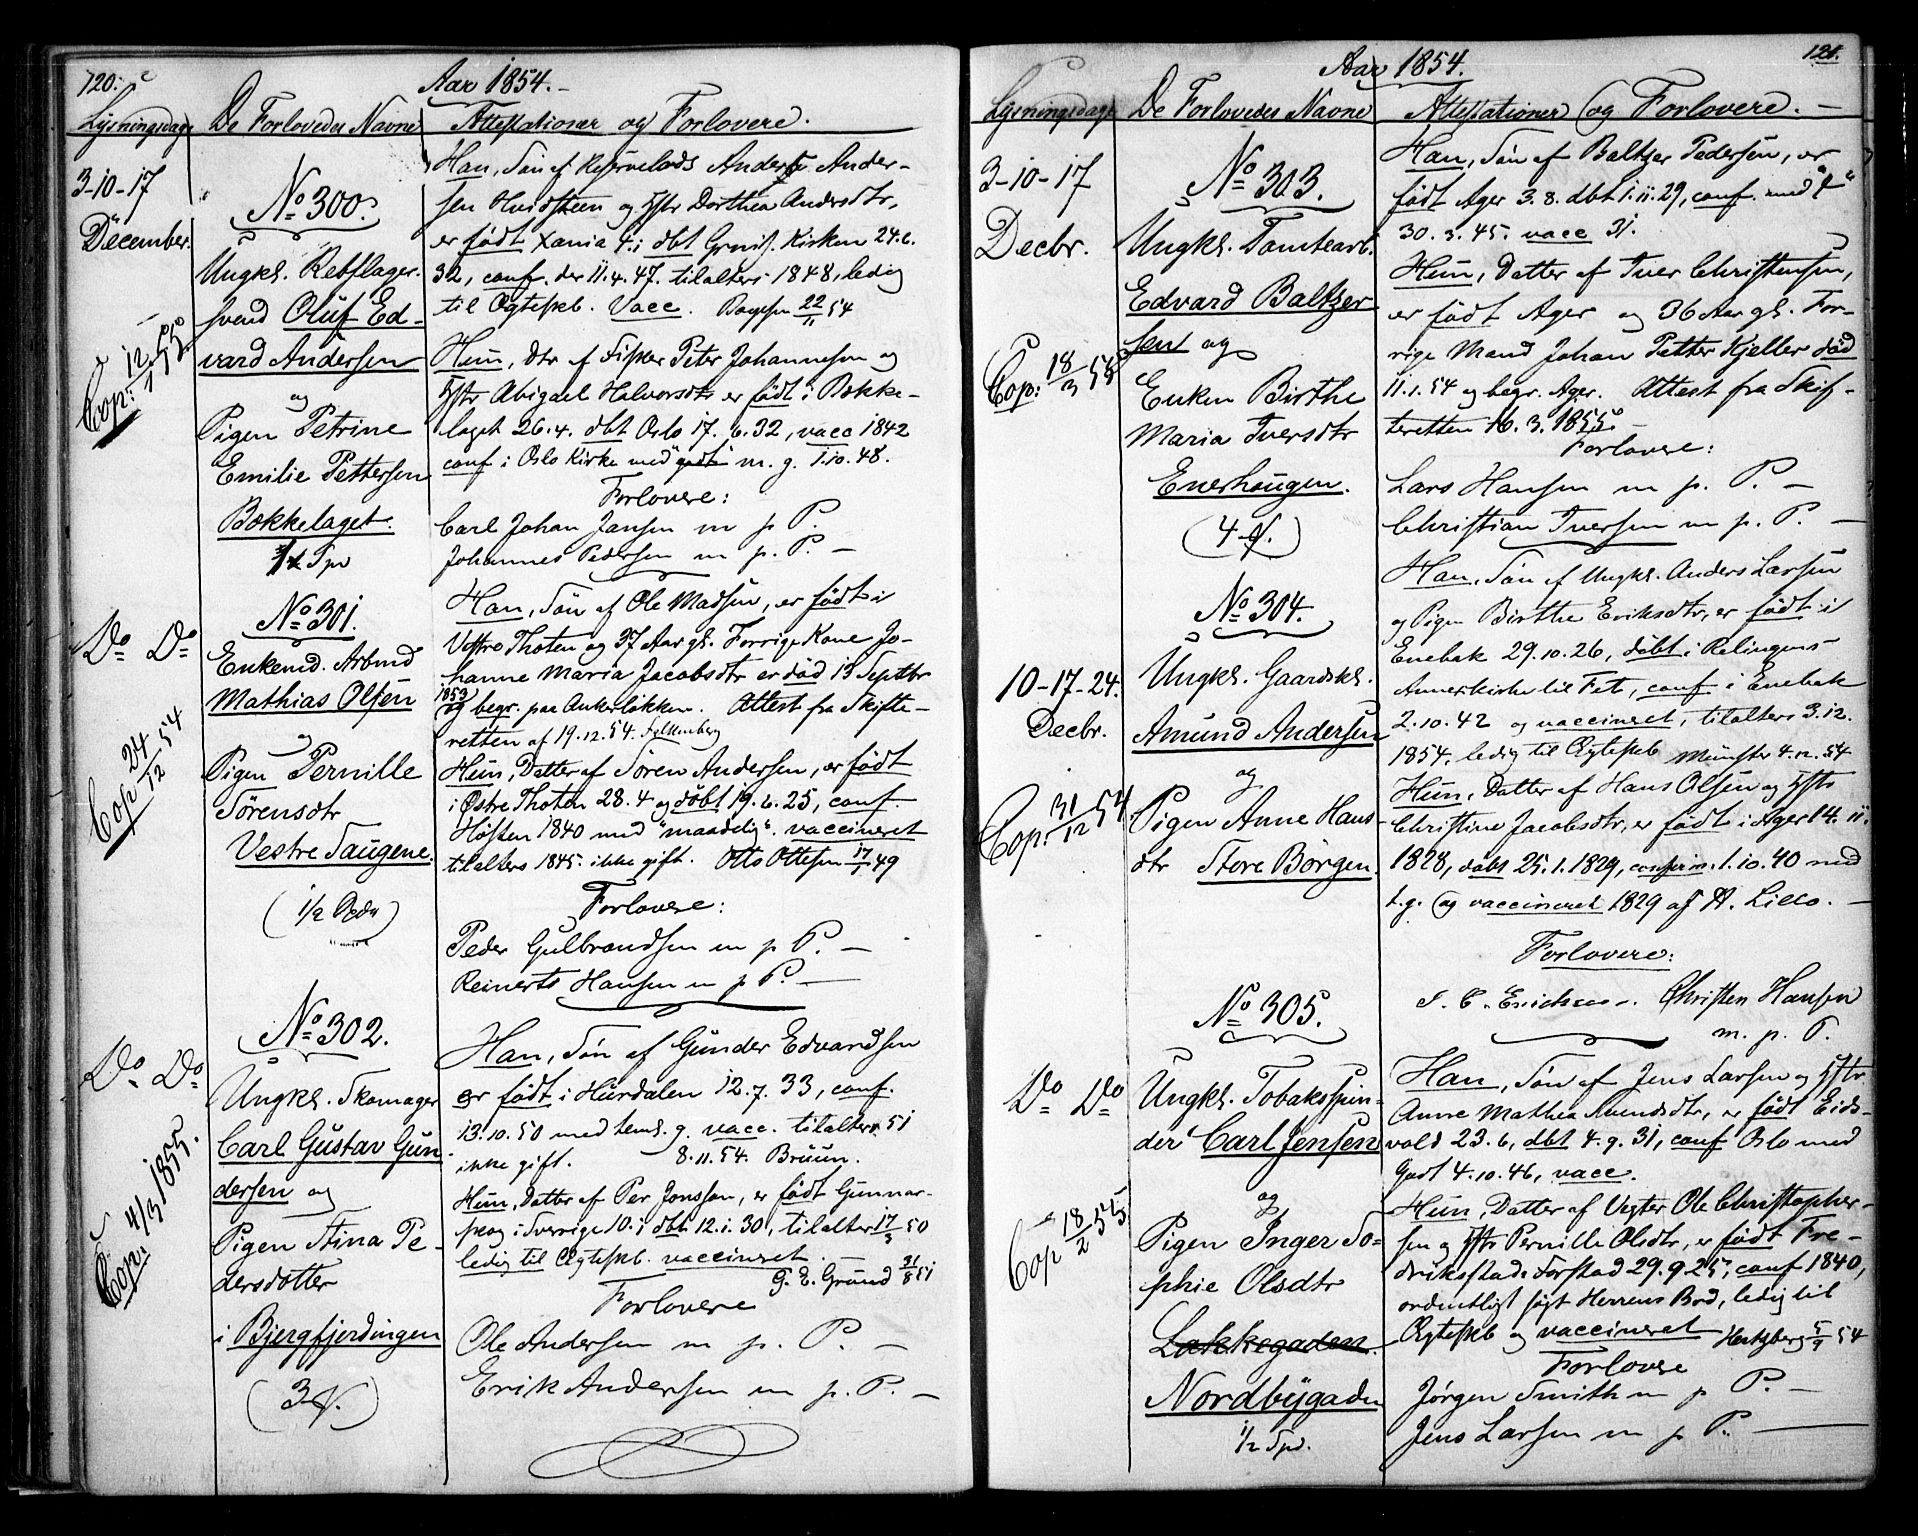 120.
Aar 1854.
Lysningsdage De Forlovedes Navne Attestationer og Forlovere.
3-10-17
December.
No 300.
Ungkl. Rebslager-
svend Oluf Ed-
vard Andersen
og
Pigen Petrine
Emilie Pettersen
Bækkelaget.
Cop: 12/1 55
Han, Søn af Anders Ander-
sen Hvidsteen og Hstr Dorthea Andersdtr,
er født Xania 4.i dbt Garnis. Kirken 24.6.
32, conf. den 11.4.47. tilalters 1848, ledig
til Ægteskb. Vacc. 22/11 54
Hun, Dtr af Fisker Peter Johannesen og
Hstr Abigael Halvorsdtr er født i Bække-
laget 26.4. dbt Oslo 17.6.32, vacc 1842
conf i Oslo Kirke med "godt" m. g. 1.10.48.
Forlovere:
Carl Johan Jansen m p P.
Johannes Pedersen m. p. P. —
Do Do
No 301.
Enkemd. Arbmd
Mathias Olsen
og
Pigen Pernille
Sørensdtr
Vestre Saugene.
Cop 24/12 54
Han, Søn af Ole Madsen, er født i
Vestre Thoten og 37 Aar gl. Forrige Kone Jo-
hanne Maria Jacobsdtr er død 13 Septbr
1853
og begr. paa Ankerløkken. Attest fra Skifte-
retten af 19.12.54. Falkenberg
Hun, Datter af Søren Andersen, er født
i Østre Thoten 28.4 og døbt 19.6.25, conf.
Høsten 1840 med "maadelig". vaccineret
tilalters 1845. ikke gift. Otto Ottesen 17/7 49
Forlovere:
Peder Gulbrandsen m p P. —
Reinerts Hansen m p P. —
Do Do
No 302.
Ungkl. Skomager
Carl Gustav Gun-
dersen og
Pigen Stina Pe-
dersdotter
i Bjergfjerdingen
Cop: 4/3 1855.
Han, Søn af Gunder Edvardsen
er født i Hurdalen 12.7.33, conf.
13.10.50 med teml. g. vacc. tilalters 51
ikke gift. 8.11.54. Bruun.
Hun, Datter af Per Jonsson, er født Gunnar-
skog i Sverrige 10.i dbt 12.i.30, tilalter 17/3 50
ledig til Ægteskb. vaccineret. —
G. E. Grund 31/8 51
Forlovere
Ole Andersen m. p. P. —
Erik Andersen m. p. P. —
121.
Aar 1854.
Lysningsdage De Forlovedes Navne Attestationer og Forlovere. —
3-10-17
Decbr.
No 303.
Ungkl. Tomtearb.
Edvard Baltzer-
sen og
Enken Birthe
Maria Iversdtr
Enerhaugen.
Cop: 18/3 55
Han, Søn af Baltzer Pedersen, er
født Ager 3.8. dbt 1.11.29, conf. med
30.3.45. vacc 31.
Hun, Datter af Iver Christensen,
er født Ager og 36 Aar gl. For-
rige Mand Johan Petter Kjeller død
11.1.54 og begr. Ager. Attest fra Skif-
teretten 16.3.1855.
Forlovere:
Lars Hansen m p. P. —
Christian Iversen m p. P. —
10-17-24.
Decbr.
No 304.
Ungkl. Gaardskl.
Amund Andersen
og
Pigen Anne Hans-
dtr Store Børgen.
Cop: 31/12 54
Han, Søn af Ungkl. Anders Larsen
og Pigen Birthe Eriksdtr, er født i
Enebak 29.10.26, døbt i Relingens
Annexkirke til Fet, conf i Enebak
2.10.42 og vaccineret, tilalters 3.12.
1854, ledig til Ægteskb Münster 4.12.54
Hun, Datter af Hans Olsen og Hstr
Christine Jacobsdtr, er født i Ager 14.11.
1828, døbt 25.1.1829, confirm. 1.10.40 med
t.g. og vaccineret 1829 af H. Lieco. —
Forlovere:
Christen Hansen
m. p. P.
Do Do
No 305.
Ungkl. Tobakspin-
der Carl Jensen
og
Pigen Inger So-
phie Olsdtr
Lakkegaden.
Nordbygaden
1/2 Spd.
Cop 18/2 55
Han, Søn af Jens Larsen og Hstr
Anne Mathea Avendsdtr, er født Eids-
vold 23.6, dbt 4.9.31, conf Oslo med
Godt 4.10.46, vacc.
Hun, Datter af Vegter Ole Christopher-
sen og Hstr Pernille Olsdtr, er født Fre-
driksstads Forstad 29.9.25, conf 1840,
ordentligt søgt Herrens Bord, ledig til
Ægteskb og vaccineret Hertzberg 5/9 54
Forlovere
Jørgen Smith m p P. —
Jens Larsen m p P. —